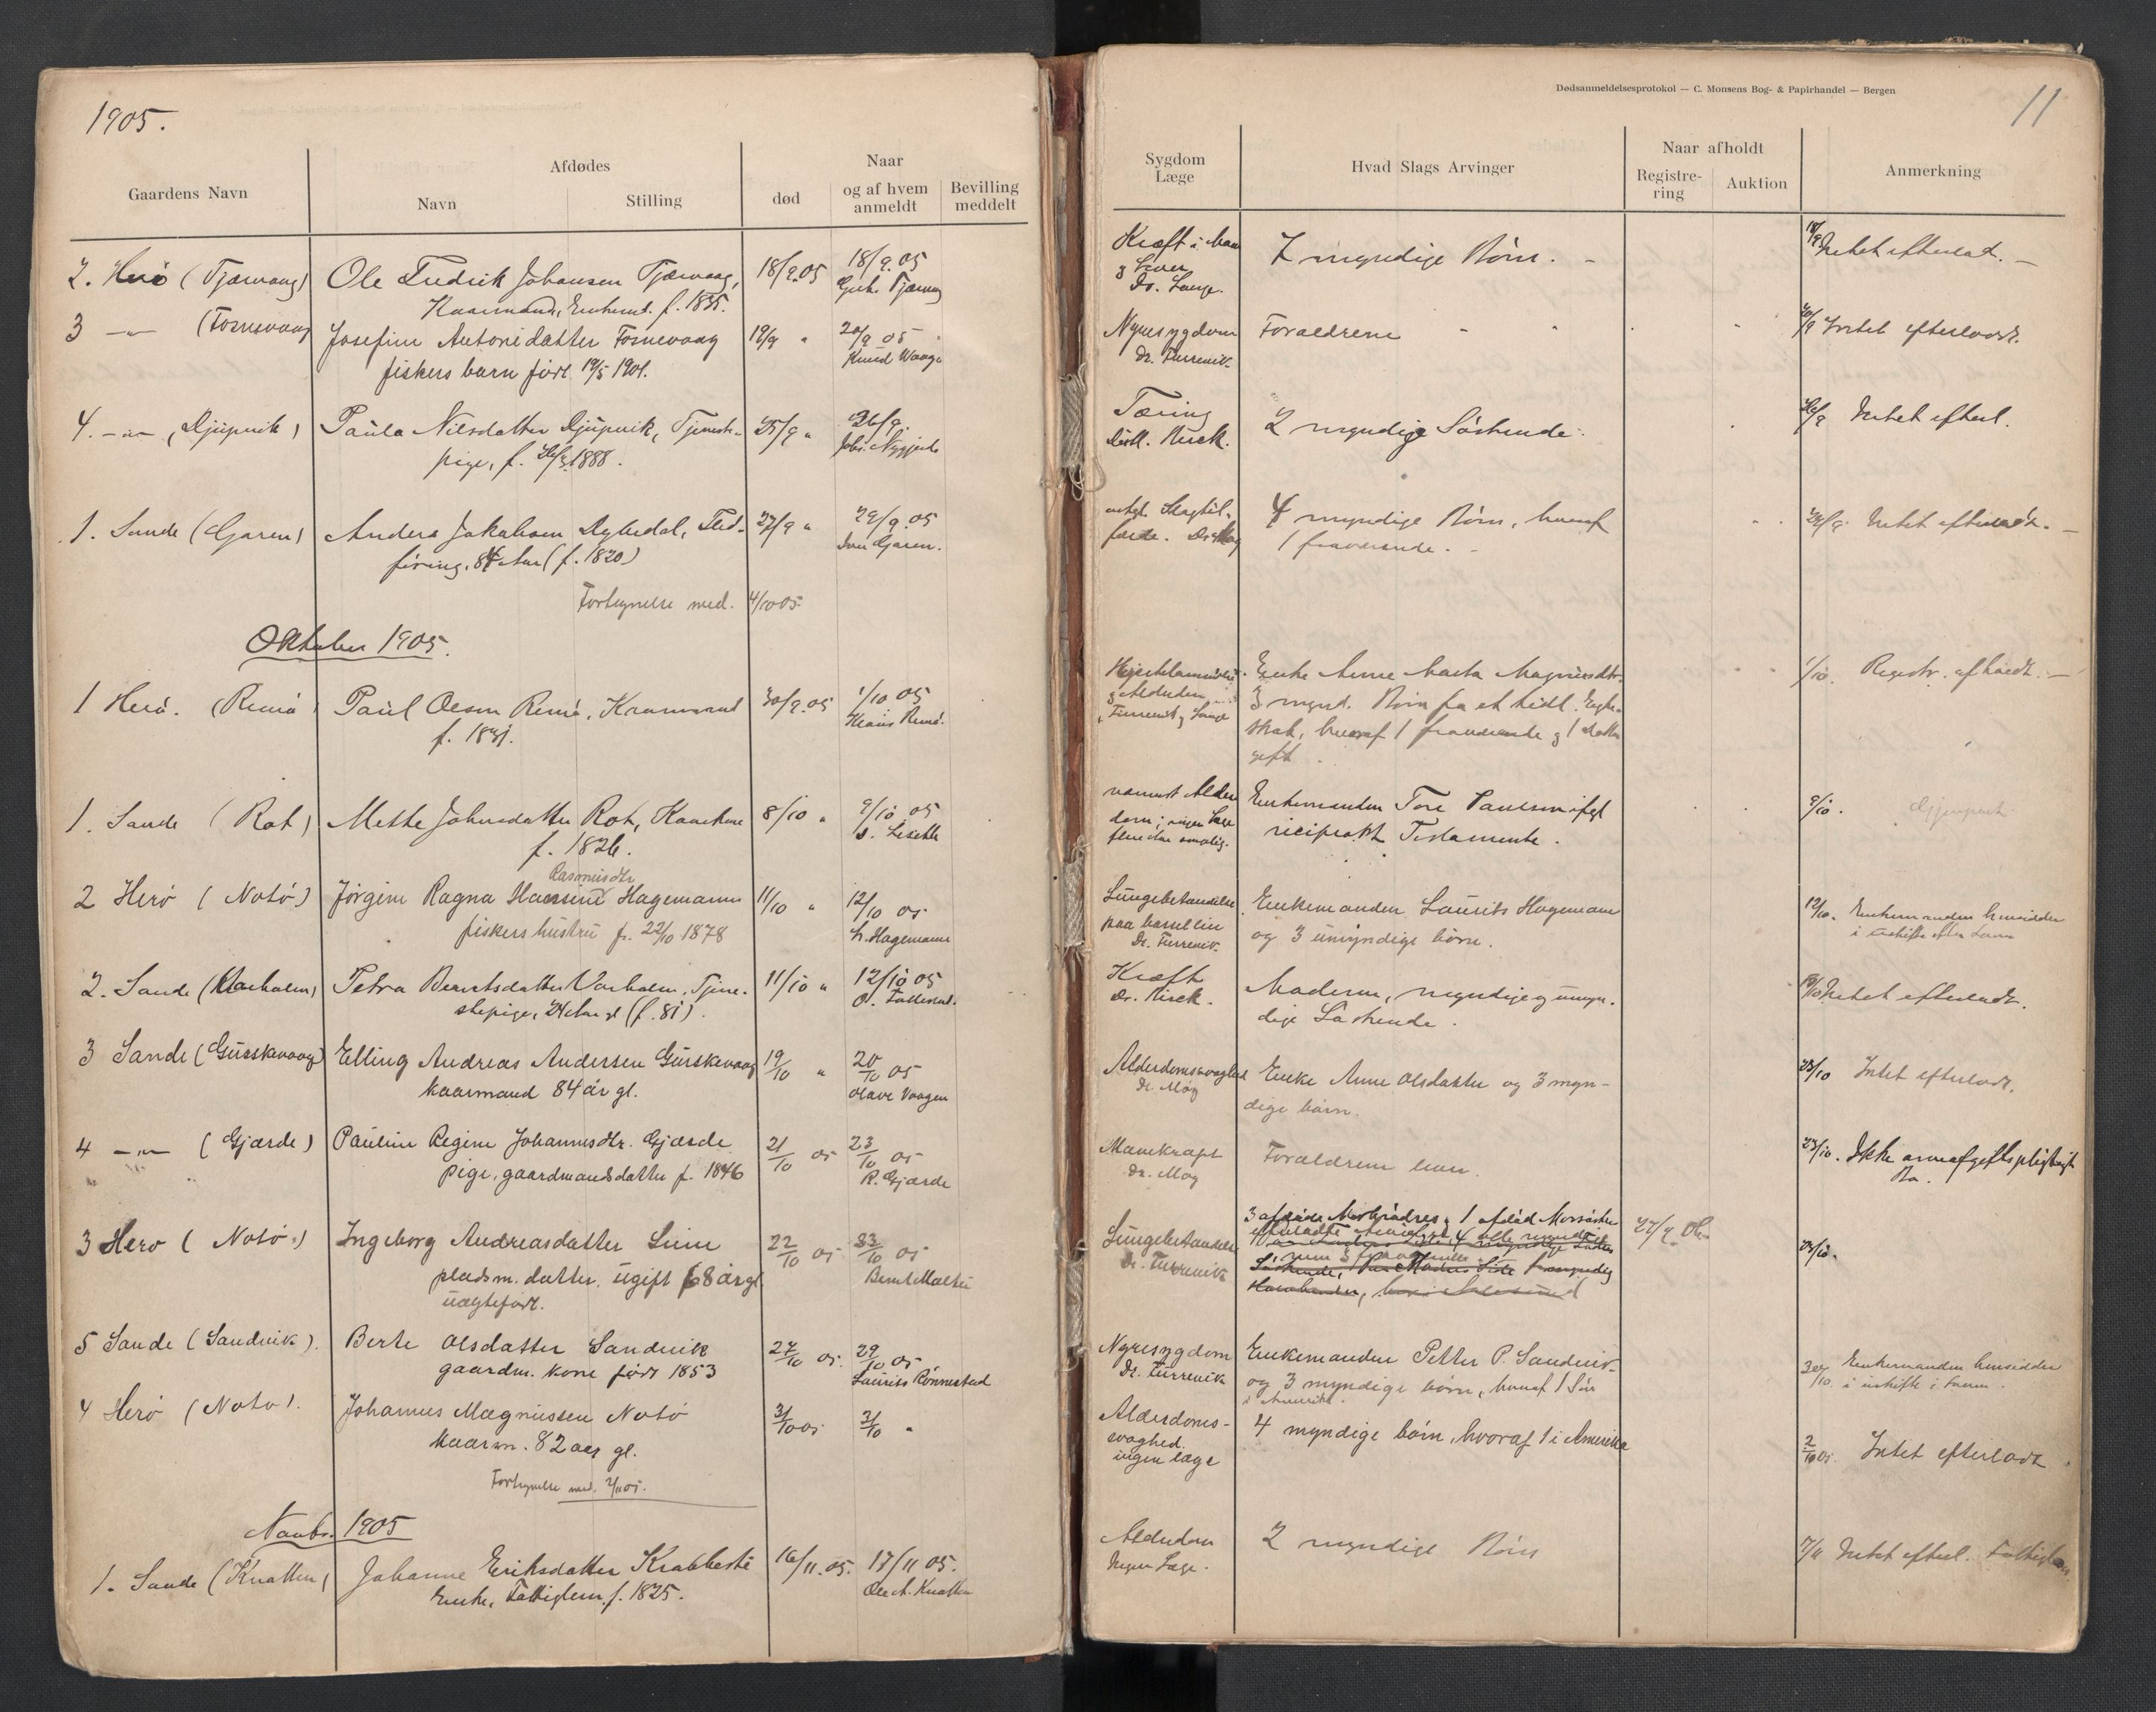 1905.
Gaardens Navn
Afdødes
Navn
Stilling
død
Naar
og af hvem
anmeldt
Bevilling
meddelt
2. Herö (Tjærvaag)
Ole Fredrik Johansen Tjærvaag,
Kaarmand, Enkemd. f. 1835.
18/9.05
18/9.05
Tjærvaag
3 -"- (Fosnevaag
Josefine Antonidatter Fosnevaag
fiskers barn født 19/5 1901.
19/9 "
20/9 05
Knud Waage
4. -"- (Djupvik)
Paula Nilsdatter Djupvik, Tjeneste-
pige, f. 1888.
25/9 "
26/9.
1. Sande (Gjaren)
Anders Jakobsen Dybedal, Flad-
føring, 84 Aar (f. 1820)
27/9 "
29/9.05
Iver Gjaren.
Fortegnelse med. 4/10 05.
Oktober 1905.
1 Herö. (Remö)
Paul Olsen Remö, Kaarmand
f. 1831.
30/9.05
1/10 05
Klaus Remö.
1. Sande (Rot)
Mette Johnsdatter Rot, Kaarkone
f. 1826.
8/10 "
9/10 05
2 Herö (Notö)
Rasmusdtr
Jørgine Ragna Hansine Hagemann
fiskers hustru f. 22/10 1878
11/10 "
12/10 05
L. Hagemann
2. Sande (Vaerholm)
Petra Berntsdatter Varholm, Tjene-
stepige, 24 Aar gl (f. 81).
11/10 "
12/10 05
3 Sande (Gurskevaag)
Elling Andreas Andersen Gurskevaag
kaarmand 84 år gl.
19/10 "
20/10 05
Olave Vaagen
4 -"- (Gjærde)
Pauline Regine Johannesdtr. Gjærde
pige, gaardmandsdatter f. 1846
21/10 05
23/10 05
R. Gjærde
3 Herø (Notö)
Ingeborg Andreasdatter
pladsm. datter, ugift 68 år gl
uægtefødt.
22/10 05
23/10 05
5 Sande (Sandvik).
Berte Olsdatter Sandvik
gaardm. kone født 1853
27/10 05.
29/10 05
Laurits Rönnestad
4 Herö (Notö).
Johannes Magnussen Notö
kaarm. 82 aar gl.
31/10 05
31/10 "
Fortegnelse med. 2/11 05.
Novbr. 1905
1. Sande (Knatten)
Johanne Eriksdatter Krabbestö
Enke, Fattiglem, f. 1825.
16/11.05.
17/11 05.
Ole A. Knatten
Dødsanmeldelsesprotokol — C. Monsens Bog- & Papirhandel — Bergen
11
Sygdom
Læge
Hvad Slags Arvinger
Naar afholdt
Registre-
ring
Auktion
Anmerkning
Kræft i Mave
g Lever
Dr. Lange.
7 myndige Börn. -
18/9 Intet efterlat. -
Nyresygdom
Dr. Furrevik.
Forældrene
20/9 Intet efterladt.
Tæring
Distl. Kirck.
2 myndige Söskende.
26/9 Intet efterl.
4 myndige Börn, hvoraf
1 fraværende. -
Intet efterladt. -
Alderdom
Furrevik g Lange
Enke Anne Marta Magnusdtr.
3 mynd. Börn fra et tidl. Egte-
skab, hvoraf 1 fraværende g 1 Datter
gift
1/10. Registr. afholdt. -
Enkemanden Tore Paulsen ifgl
reciprokt Testamente.
9/10.
Lungebetændelse
paa barselseng
Dr. Furrevik.
Enkemanden Laurits Hagemann
og 3 umyndige börn.
12/10. Enkemanden hensidder
i uskifte efter Loven
Kræft
Dr. Kirck.
Moderen, myndige g umyn-
dige Söskende.
Intet efterladt.
Alderdomssvaghed
Dr. Møg
Enke Anne Olsdatter og 3 myn-
dige börn.
23/10 Intet efterladt.
Mavekræft
Dr. Møg
Forældrene
23/10. Ikke arveafgiftspligtigt
Bo.
Lungebetændelse
Dr. Furrevik
27/9
Nyresygdom
Dr. Furrevik
Enkemanden Petter P. Sandvik
og 3 myndige börn, hvoraf 1 Sön
i Amerika.
Enkemanden hensidder
i uskifte
Alderdoms-
svaghed.
ingen læge
4 myndige börn, hvoraf 1 i Amerika
Intet efterladt
Alderdom
Ingen Læge.
2 myndige Börn
Intet efterl. Fattiglem.